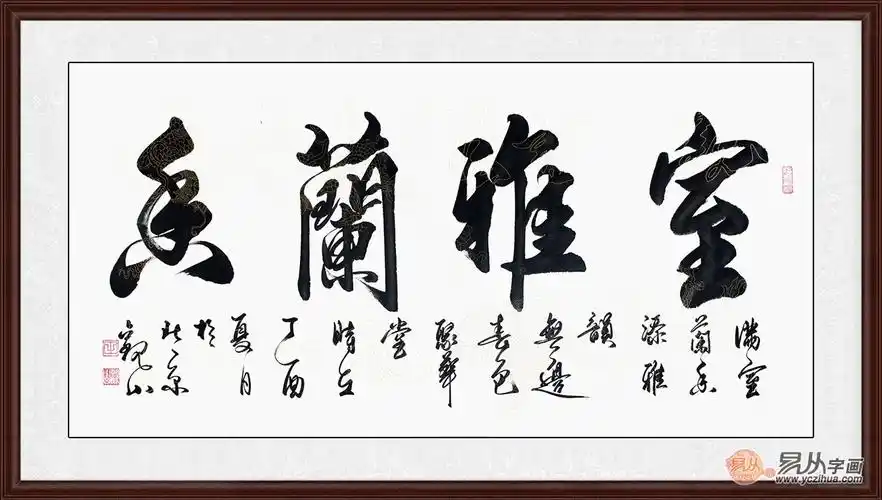 室雅蘭香
滿室
蘭香
添雅
韻
無邊
春色
聚華
堂
時在
丁酉
夏月
於
北京
觀山
易从字画
www.yczihua.com